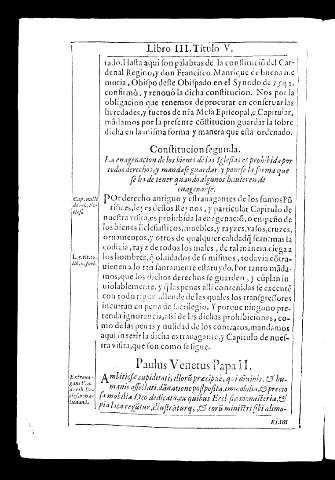 Libro III. Titulo V.
tado. Hasta aqui son palabras de la constituciõ del Car-
denal Regino, y don Francisco Manrique de buena me
moria, Obispo deste Obispado en el Synodo de 1545.
confirmò, y renouò la dicha constitucion. Nos por la
obligacion que tenemos de procurar en conseruar las
heredades, y fueros de nr̃a Mesa Episcopal, y Capitular,
mãdamos por la presente cõstitucion guardar la sobre
dicha en la misma forma y manera que està ordenado.
Constitucion segunda.
La enagenacion de los bienes de las Iglesias es prohibida por
todos derechos, y mandase guardar, y ponese la forma que
se ha de tener quando algunos huuieren de
enagenarse.
POr derecho antiguo y estrauagantes de los sumos Põ
tifices, leyes destos Reynos, y particular Capitulo de
nuestra visita, es prohibida la enagenaciõ, o empeño de
los bienes Eclesiasticos, muebles, y rayzes, vasos, cruzes,
ornamentos, y otros de qualquier calidad q̃ sean: mas la
codicia, rayz de todos los males, de tal manera ciega a
los hombres, q̃ oluidados de si mismos, todauia cõtra-
uienen a lo tan santamente estatuydo. Por tanto mãda-
mos, que los dichos derechos se guarden, y cũplan in
uiolablemente, y q̃ las penas alli contenidas se executẽ
con todo rigor, allende de las quales los transgressores
incurran en pena de sacrilegio. Y porque ninguno pre-
tenda ignorancia, assi de las dichas prohibiciones, co-
mo de las penas y nulidad de los contratos, mandamos
aqui inserir la dicha estrauagante, y Capitulo de nues-
tra visita, que son como se sigue.
Paulus Venetus Papa II.
AMbitiosæ cupiditati, illorũ præcipuè, qui diuinis, & hu-
manis affectati, dãnatione postposita, immobilia, & precio
sa mobilia Deo dedicata, ex quibus Ecclesiæ monasteria, &
pia loca regũtur, illustrãturq;, & eorũ ministri sibi alimo-